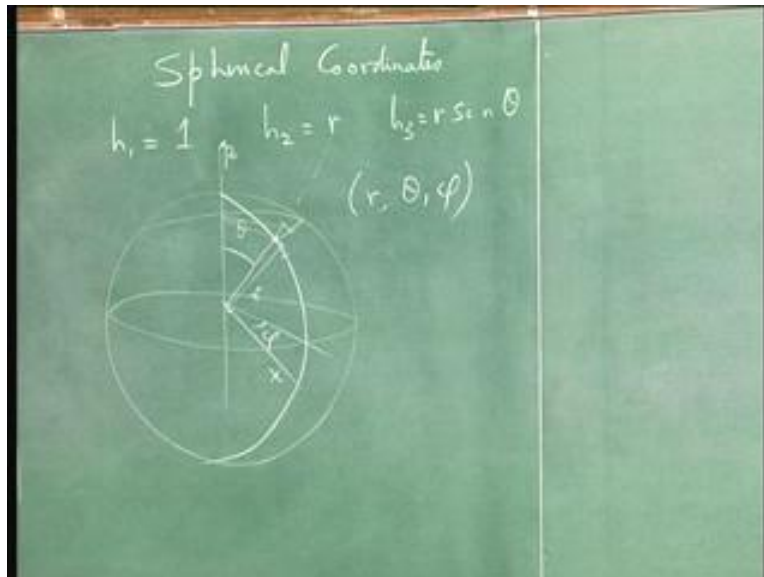 Spherical Coordinates
h₁ = 1 h₂ = r h₃ = r Sin θ
(r, θ, φ)
θ
r
φ
x